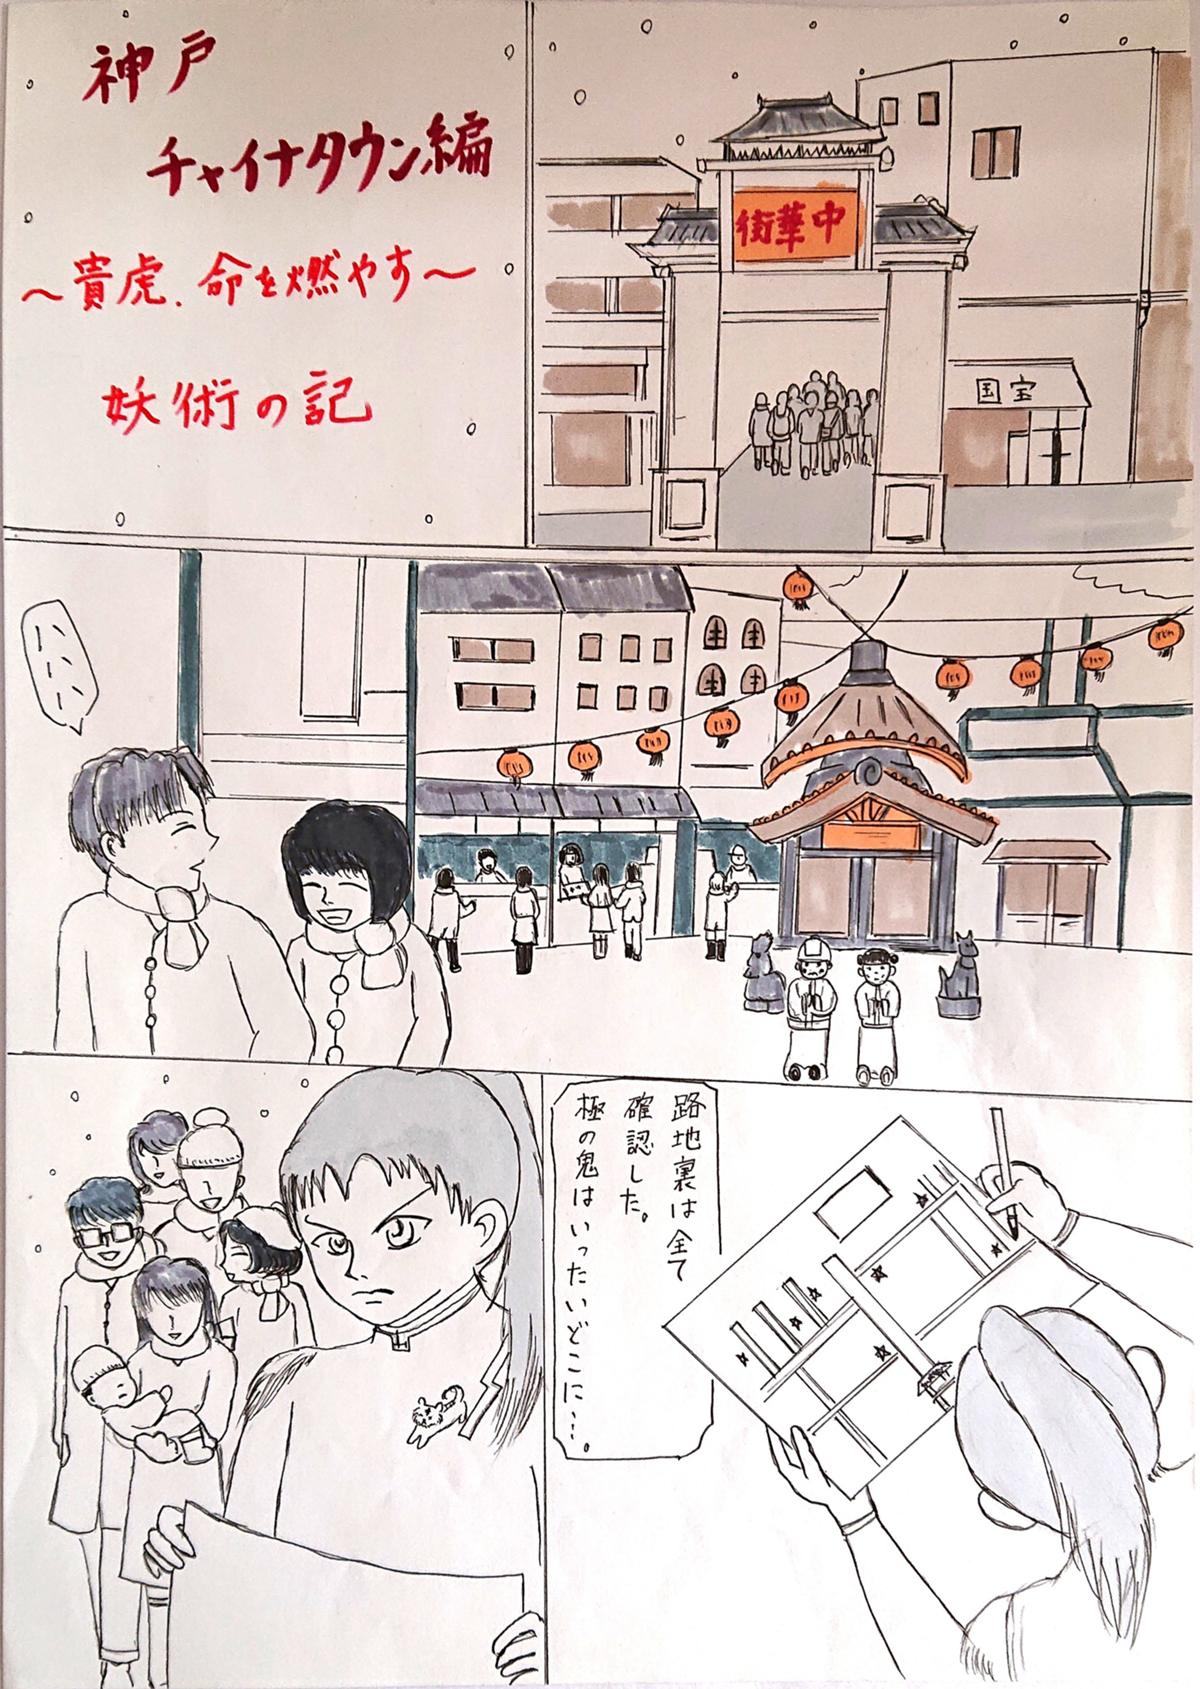 神戸
チャイナタウン編
～貴虎、命を燃やす～
妖術の記
街華中
国宝
路地裏は全て
確認した。
極の鬼はいったいどこに…。